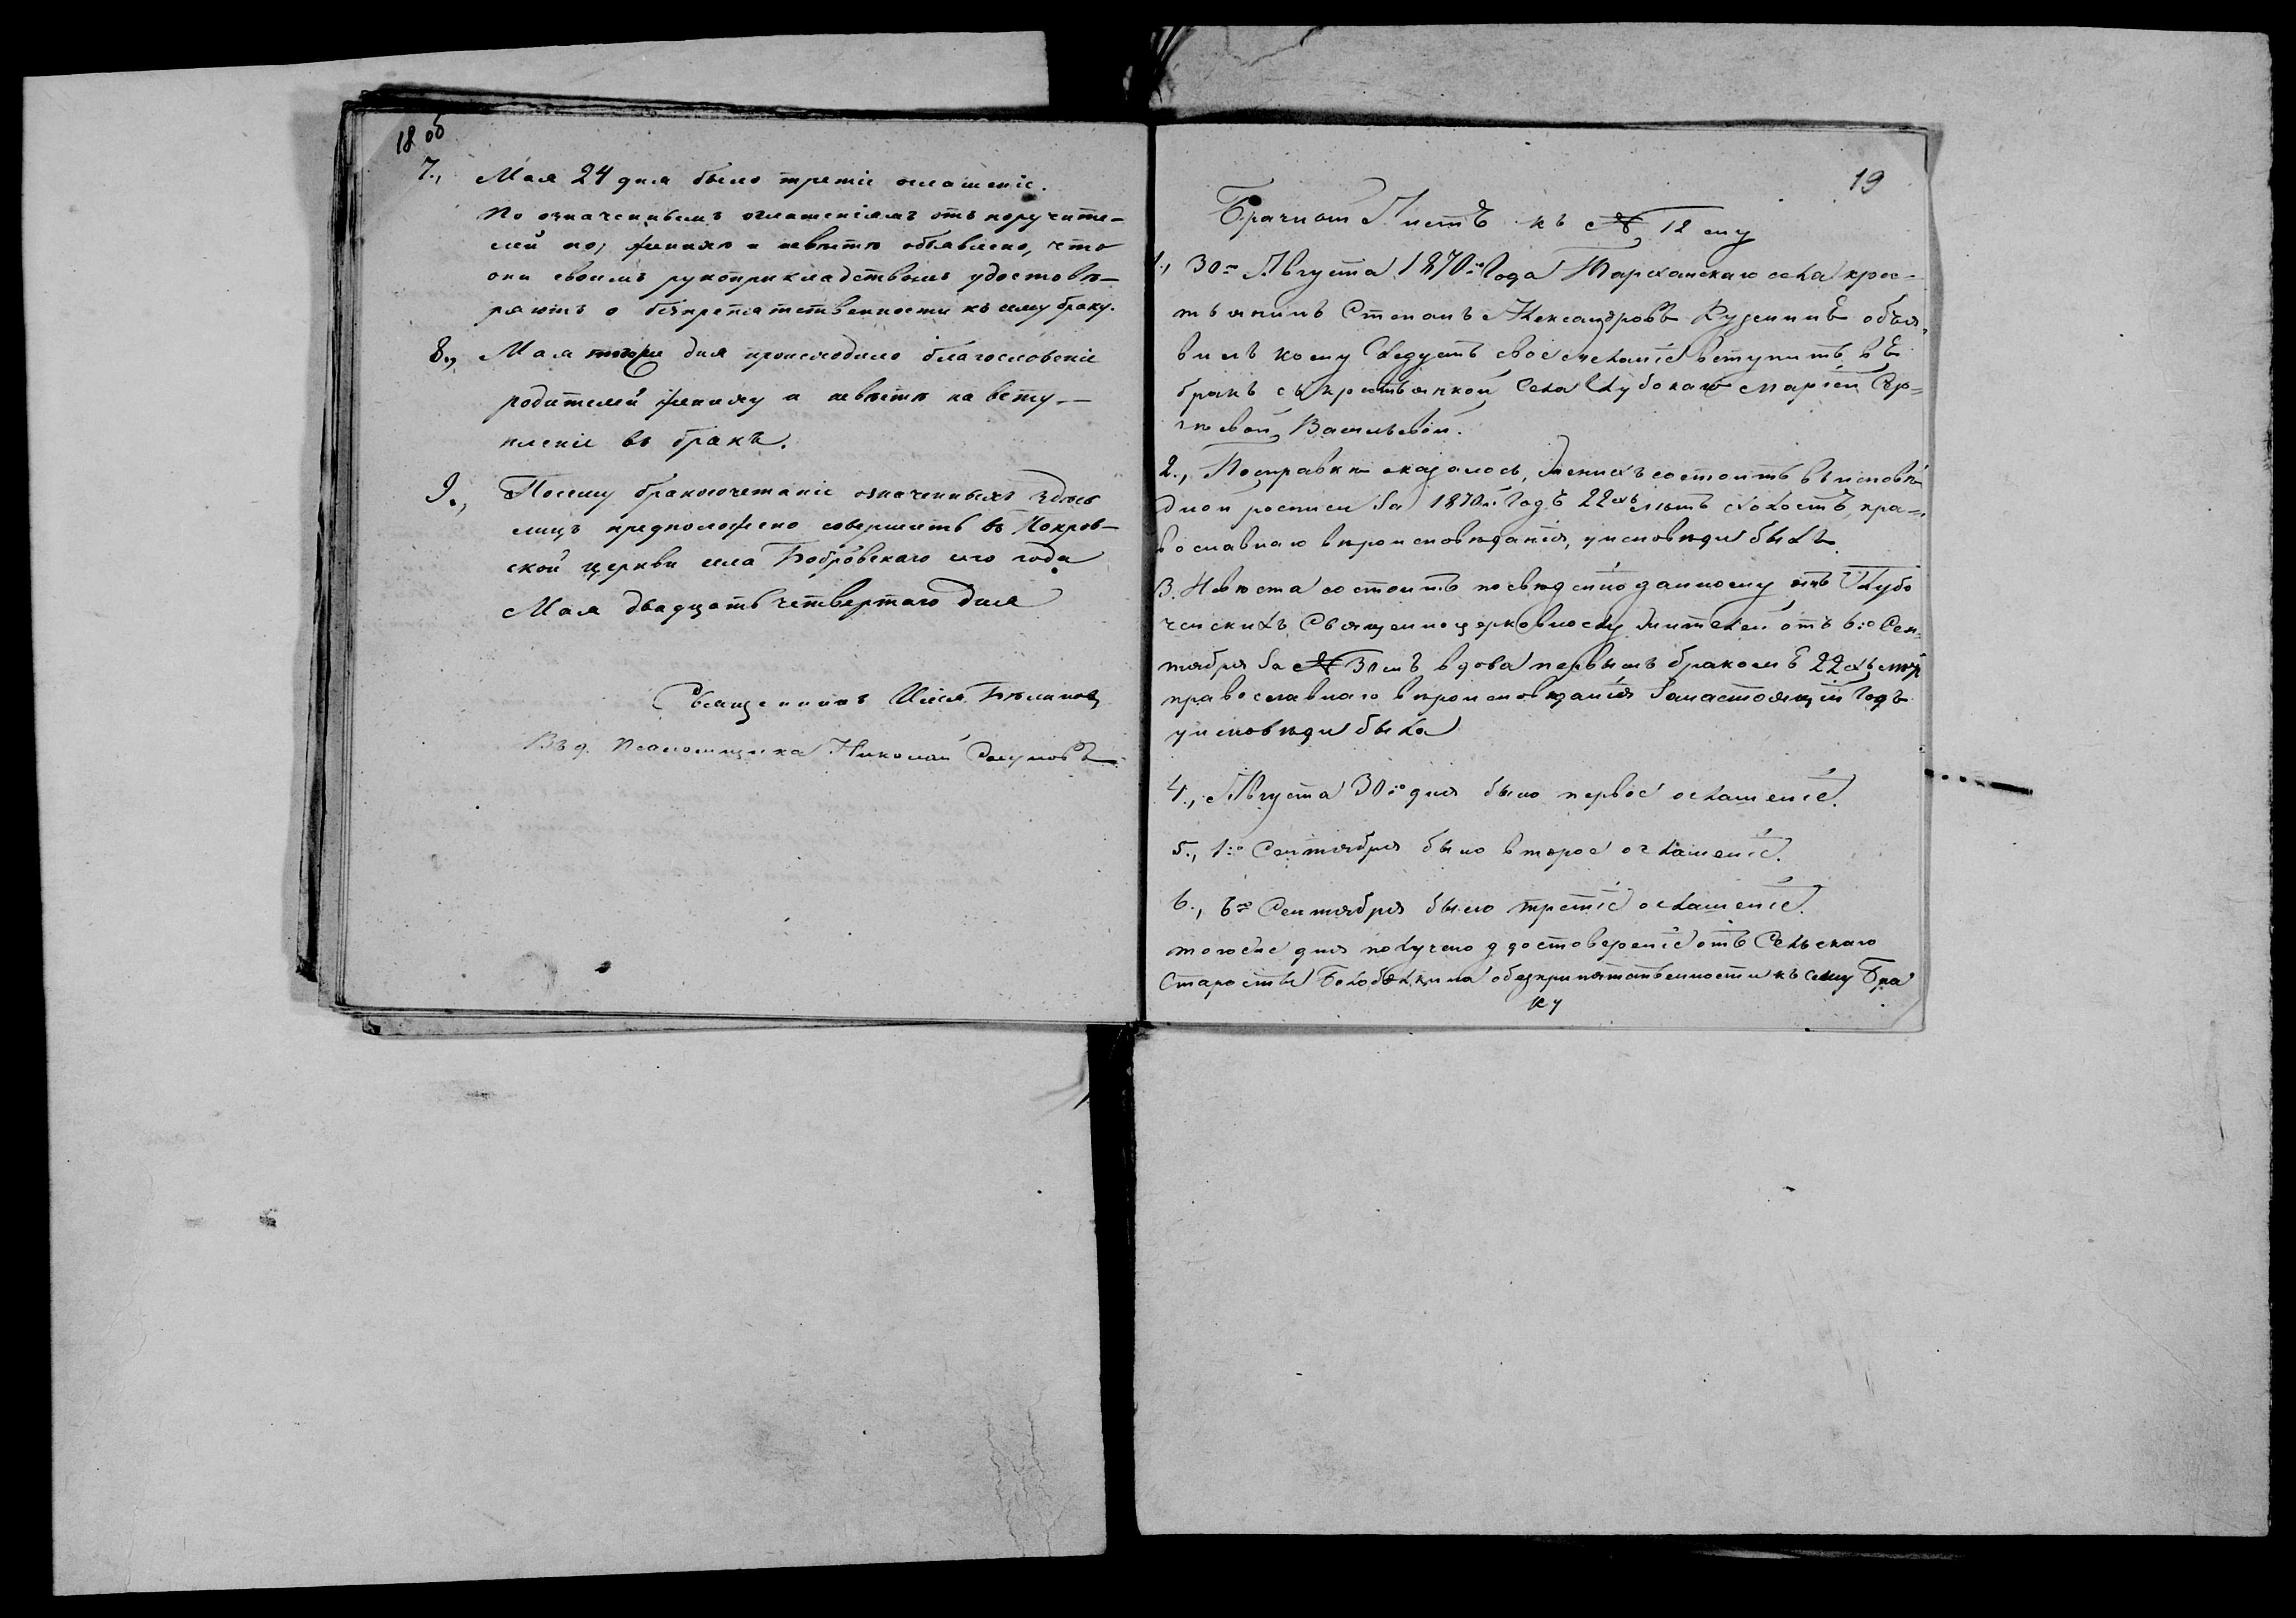 18 об
7., Мая 24 дня было третіе оглашеніе.
По означеннымъ оглашеніямъ отъ поручите-
лей по, жениху и невѣстѣ объявлено, что
они своимъ рукоприкладствомъ удостовѣ-
ряютъ о безпрепятственности къ сему браку.
8., Мая того же дня происходило благословеніе
родителей жениху и невѣстѣ на всту-
пленіе въ бракъ.
9., Посему бракосочетаніе означенныхъ здѣсь
лицъ предположено совершить въ Покров-
ской церкви села Бобровскаго сего года
Мая двадцать четвертаго дня
Священникъ Илія
Въ д. Псаломщика Николай
19
Брачной Листъ къ № 12 му
1., 30го Августа 1870го Года Тарханскаго села крес-
тьянинъ Степанъ Александровъ объя-
вилъ кому следуетъ свое желаніе вступить въ
бракъ съ крестьянкой села Клубокаго Маріей
Васильевой.
2., По справкѣ оказалось, женихъ состоитъ въ исповѣ
дной росписи за 1870й Годъ 22хъ лѣтъ холостъ, пра-
вославнаго вѣроисповѣданія, у исповѣди былъ.
3. Невѣста состоитъ по свѣденію данному отъ Клубо
ченскихъ Священноцерковнослужителей отъ 6го Сен-
тября за № 30мъ вдова первымъ бракомъ 22хъ лѣтъ
православнаго вѣроисповѣданія за настоящій Годъ
у исповѣди была
4., Августа 30го дня было первое оглашеніе.
5., 1го Сентября было второе оглашеніе.
6., 6го Сентября было третіе оглашеніе.
того же дня получено удостовереніе отъ Сельскаго
Старосты о безприпятственности къ сему Бра
ку